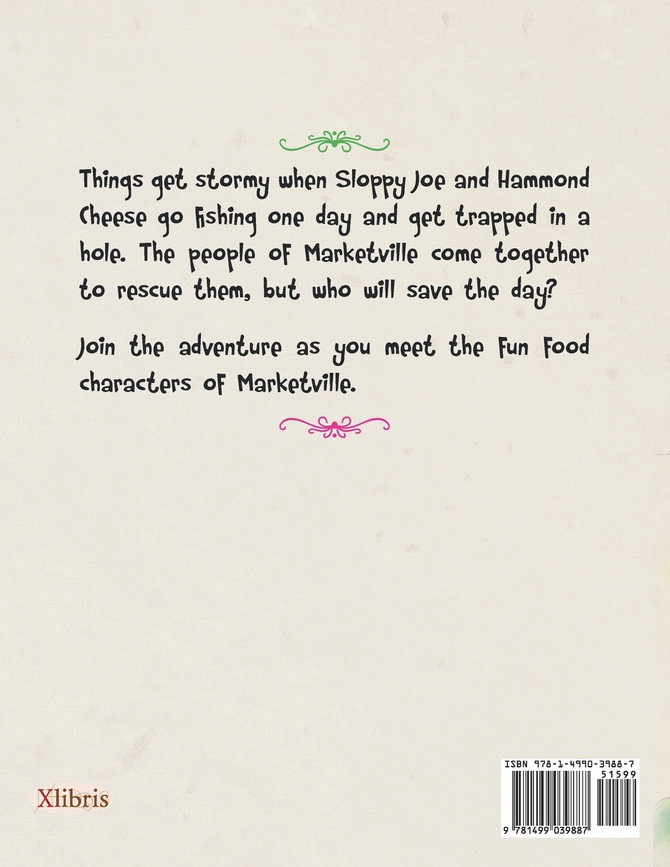 Things get stormy when Sloppy Joe and Hammond
Cheese go fishing one day and get trapped in a
hole. The people of Marketville come together
to rescue them, but who will save the day?
Join the adventure as you meet the Fun Food
characters of Marketville.
Xlibris
ISBN 978-1-4990-3988-7
51599
9 781499 039887